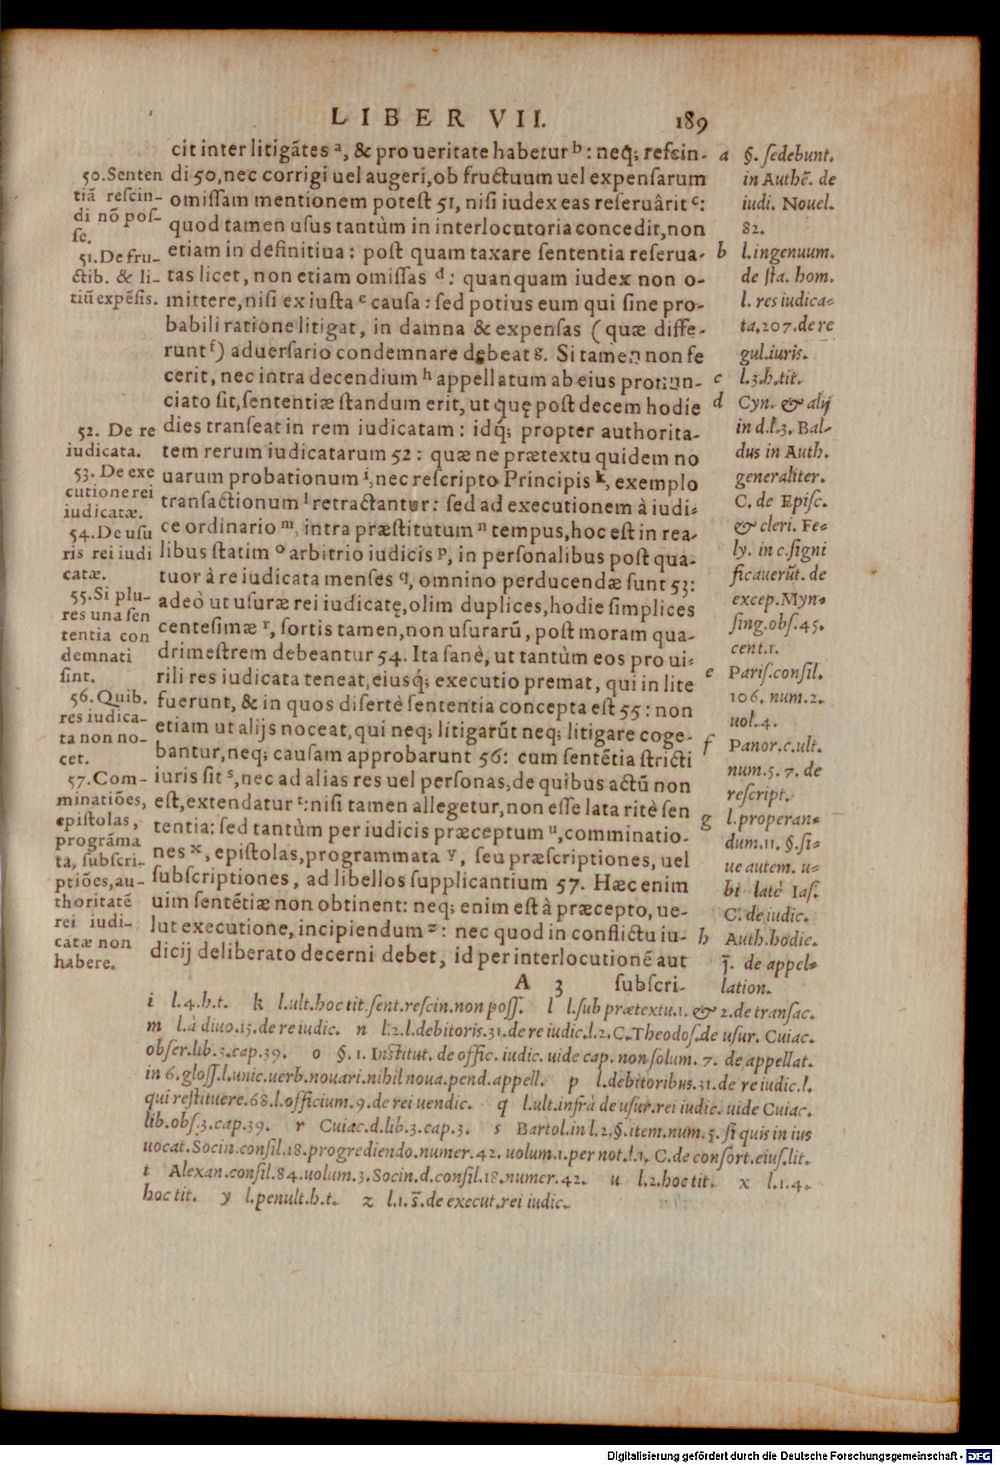 LIBER VII. 189
cit inter litigãtes a, & pro ueritate habetur b: neq; reſcin-
di 50, nec corrigi uel augeri, ob fructuum uel expenſarum
omiſſam mentionem poteſt 51, niſi iudex eas reſeruârit c:
quod tamen uſus tantùm in interlocutoria concedit, non
etiam in definitiua: poſt quam taxare ſententia reſerua-
tas licet, non etiam omiſſas d: quanquam iudex non o-
mittere, niſi ex iuſta e cauſa: ſed potius eum qui ſine pro-
babili ratione litigat, in damna & expenſas (quæ diffe-
runt f) aduerſario condemnare debeat g. Si tamen non fe
cerit, nec intra decendium h appellatum ab eius pronun-
ciato ſit, ſententiæ ſtandum erit, ut quę poſt decem hodie
dies tranſeat in rem iudicatam: idq́; propter authorita-
tem rerum iudicatarum 52: quæ ne prætextu quidem no
uarum probationum i, nec reſcripto Principis k, exemplo
tranſactionum l retractantur: ſed ad executionem à iudi-
ce ordinario m, intra præſtitutum n tempus, hoc eſt in rea-
libus ſtatim o arbitrio iudicis p, in perſonalibus poſt qua-
tuor à re iudicata menſes q, omnino perducendæ ſunt 53:
adeò ut uſuræ rei iudicatę, olim duplices, hodie ſimplices
centeſimæ r, ſortis tamen, non uſurarũ, poſt moram qua-
drimeſtrem debeantur 54. Ita ſanè, ut tantùm eos pro ui-
rili res iudicata teneat, eiusq́; executio premat, qui in lite
fuerunt, & in quos diſertè ſententia concepta eſt 55: non
etiam ut alijs noceat, qui neq; litigarũt neq; litigare coge-
bantur, neq; cauſam approbarunt 56: cum ſentẽtia ſtricti
iuris ſit s, nec ad alias res uel perſonas, de quibus actũ non
eſt, extendatur t: niſi tamen allegetur, non eſſe lata ritè ſen
tentia: ſed tantùm per iudicis præceptum u, comminatio-
nes x, epiſtolas, programmata y, ſeu præſcriptiones, uel
ſubſcriptiones, ad libellos ſupplicantium 57. Hæc enim
uim ſentẽtiæ non obtinent: neq; enim eſt à præcepto, ue-
lut executione, incipiendum z: nec quod in conflictu iu-
dicij deliberato decerni debet, id per interlocutionẽ aut
A 3 ſubſcri-
50. Senten
tiã reſcin-
di nõ poſ-
ſe.
51. De fru-
ctib. & li-
tiũ expẽſis.
52. De re
iudicata.
53. De exe
cutione rei
iudicatæ.
54. De uſu
ris rei iudi
catæ.
55. Si plu-
res una ſen
tentia con
demnati
ſint.
56. Quib.
res iudica-
ta non no-
cet.
57. Com-
minatiões,
epiſtolas,
programa
ta, ſubſcri-
ptiões, au-
thoritatẽ
rei iudi-
catæ non
habere.
a §. ſed ebunt.
in Authẽ. de
iudi. Nouel.
82.
b l. ingenuum.
de ſta. hom.
l. res iudica-
ta. 207. de re
gul. iuris.
c l. 3. h. tit.
d Cyn. & alij
in d. l. 3. Bal-
dus in Auth.
generaliter.
C. de Epiſc.
& cleri. Fe-
ly. in c. ſigni
ficauerũt. de
excep. Myn-
ſing. obſ. 45.
cent. 1.
e Pariſ. conſil.
106. num. 2.
uol. 4.
f Panor. c. ult.
num. 5. 7. de
reſcript.
g l. properan-
dum. 11. §. ſi-
ue autem. u-
bi latè Iaſ.
C. de iudic.
h Auth. hodie.
ſ̃. de appel-
lation.
i l. 4. h. t. k l. ult. hoc tit. ſent. reſcin. non poſſ. l l. ſub prætextu. 1. & 2. de tranſac.
m l. à diuo. 15. de re iudic. n l. 2. l. debitoris. 31. de re iudic. l. 2. C. Theodoſ. de uſur. Cuiac.
obſer. lib. 3. cap. 39. o §. 1. Inſtitut. de offic. iudic. uide cap. non ſolum. 7. de appellat.
in 6. gloſſ. l. unic. uerb. nouari. nihil noua. pend. appell. p l. debitoribus. 31. de re iudic. l.
qui reſtituere. 68. l. officium. 9. de rei uendic. q l. ult. infrà de uſur. rei iudic. uide Cuiac.
lib. obſ. 3. cap. 39. r Cuiac. d. lib. 3. cap. 3. s Bartol. in l. 2. §. item. num. 5. ſi quis in ius
uocat. Socin. conſil. 18. progrediendo. numer. 42. uolum. 1. per not. l. 1. C. de conſort. eiuſ. lit.
t Alexan. conſil. 84. uolum. 3. Socin. d. conſil. 18. numer. 42. u l. 2. hoc tit. x l. 1. 4.
hoc tit. y l. penult. h. t. z l. 1. ſ̃. de execut. rei iudic.
Digitalisierung gefördert durch die Deutsche Forschungsgemeinschaft - DFG